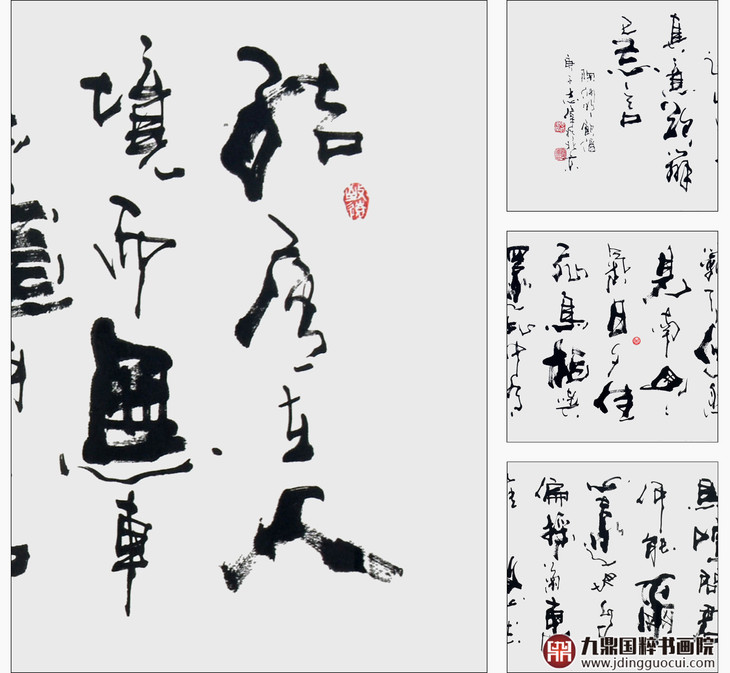 結廬在人
境而無車
真意欲辯
已忘言
見南山
氣日夕佳
飛鳥相與
還此中有
馬喧問君
何能爾
心遠地自
偏採菊東
九鼎国粹书画院
www.jdingguocui.com